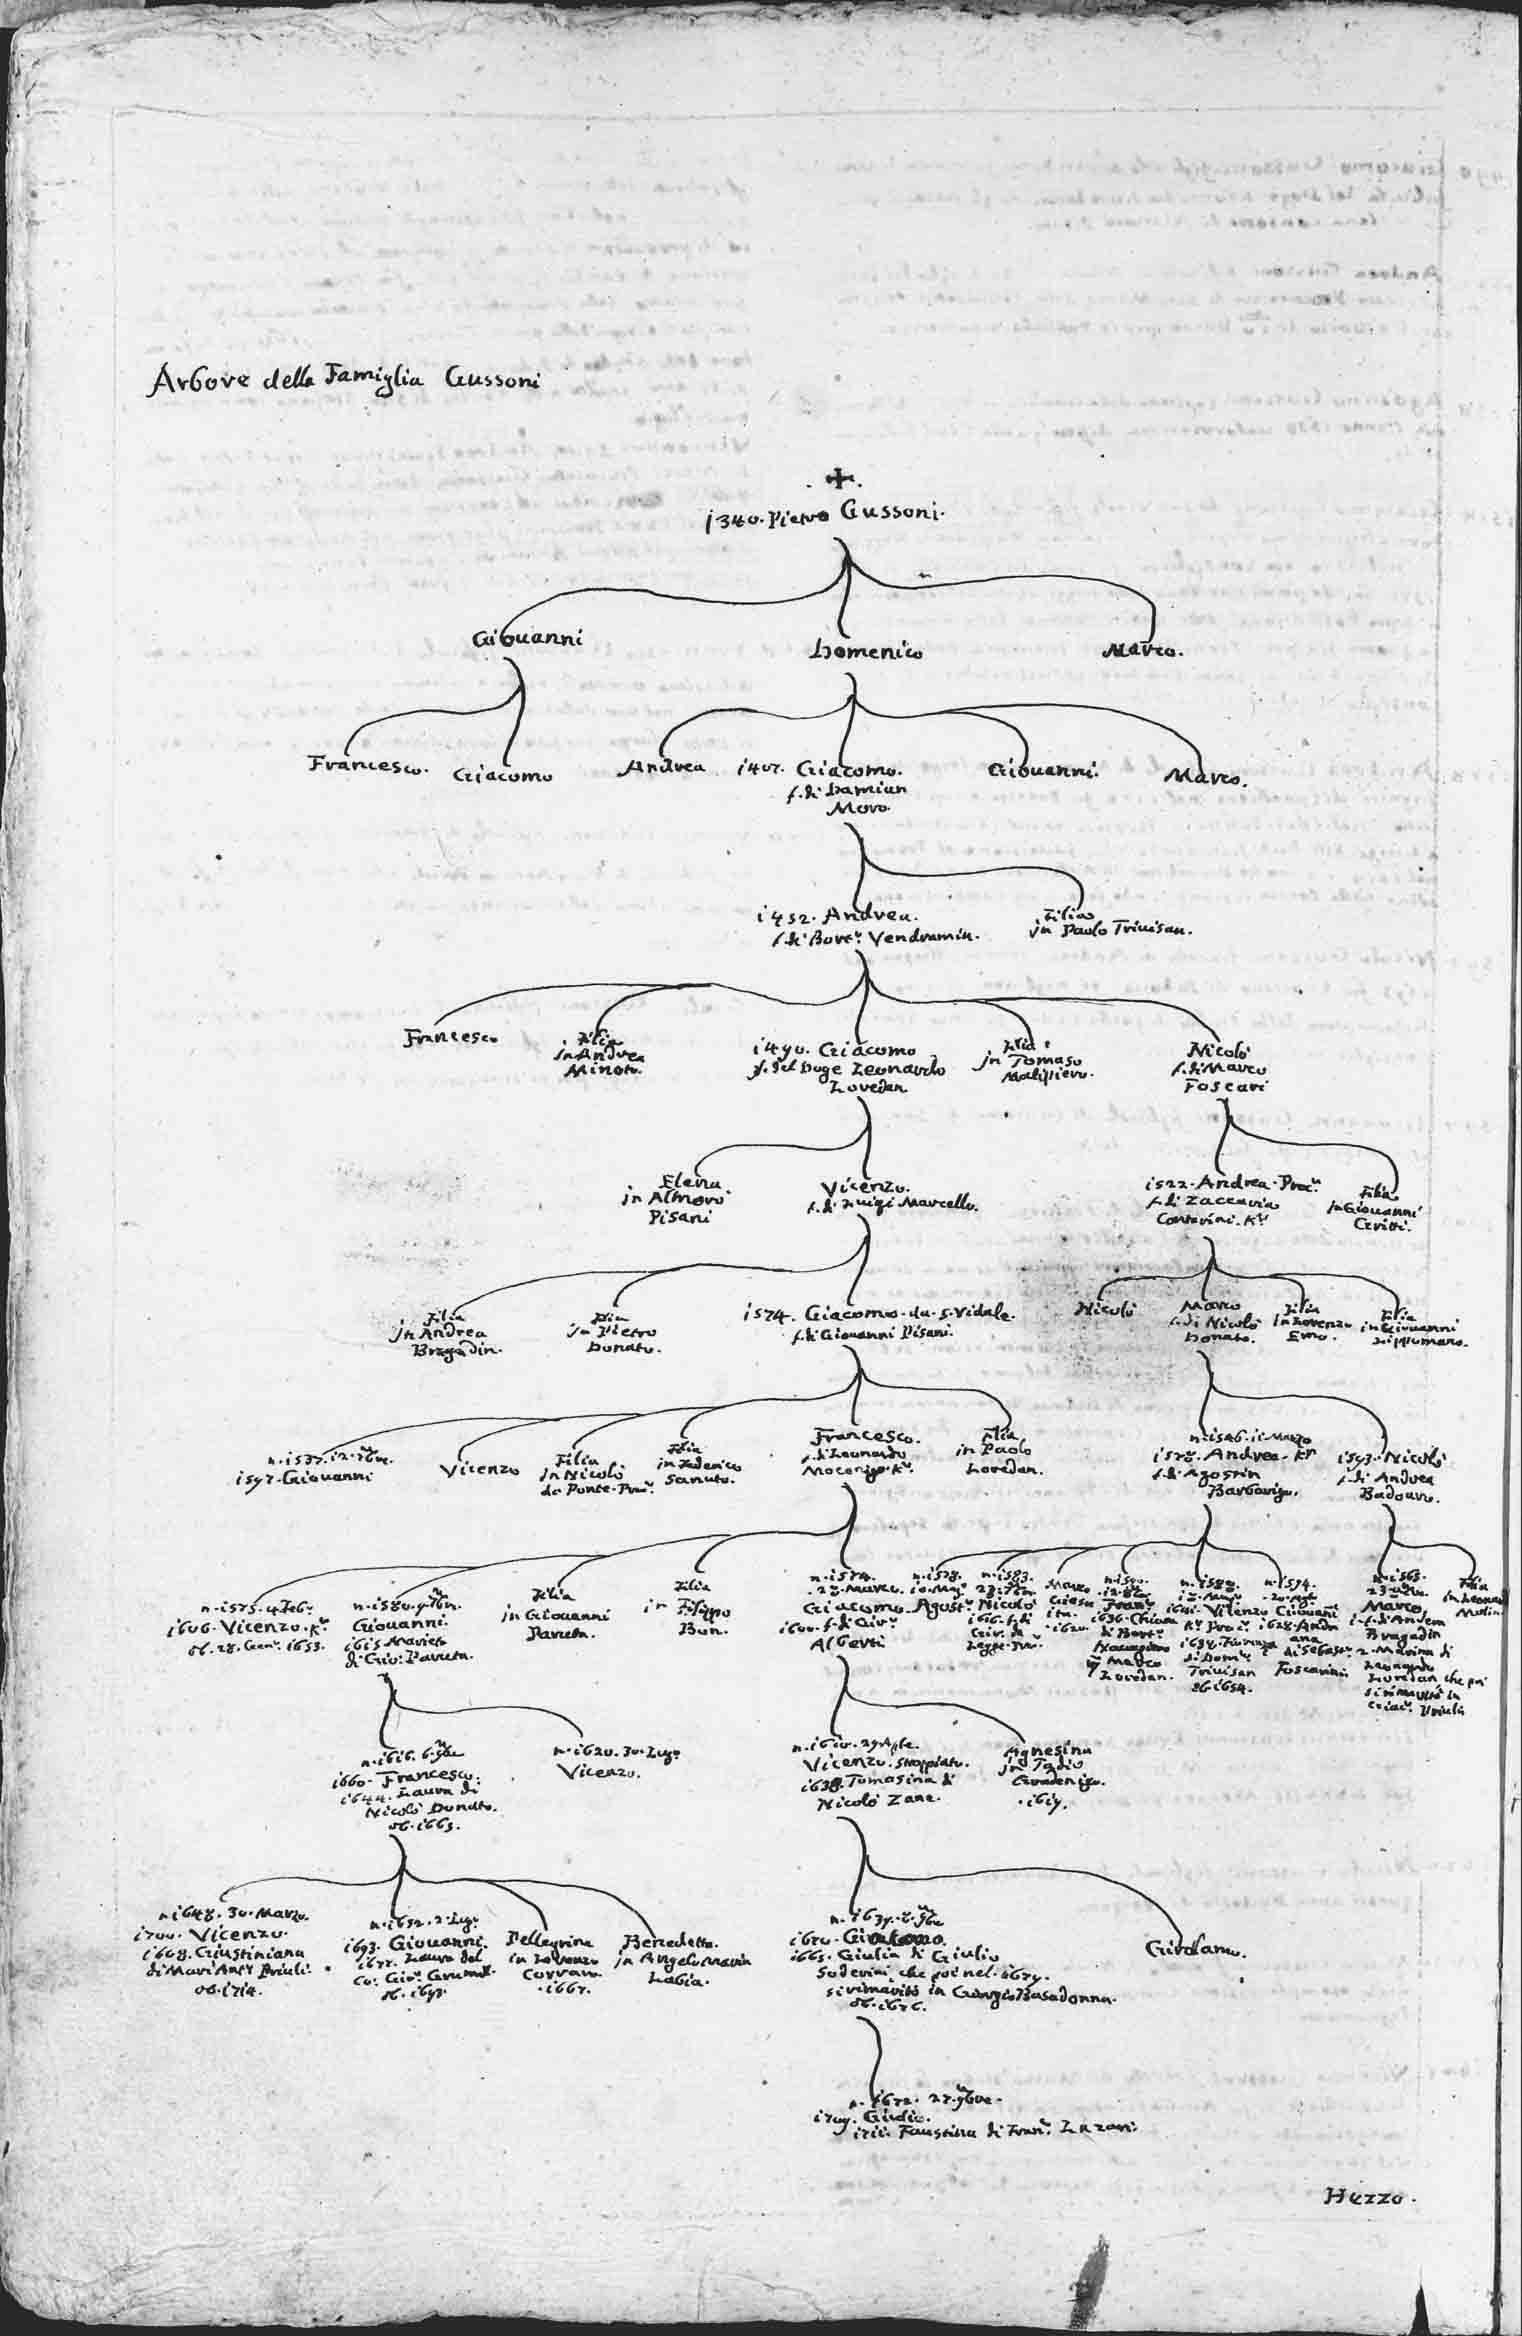 Arbore della Famiglia Gussoni
1340. Pietro Gussoni.
Giouanni
Domenico
Marco.
Francesco.
Giacomo
Andrea
1407. Giacomo.
f. di Damian
Moro.
Giouanni.
Marco.
1452. Andrea.
f. di Bort.º Vendramin.
Filia
jn Paolo Triuisan.
Francesco
Filia
jn Andrea
Minoto.
1490. Giacomo
f. del Doge Leonardo
Loredan
Filia
jn Tomaso
Malipiero.
Nicolò
f. di Marco
Foscari
Elena
jn Almorò
Pisani
Vicenzo.
f. di Luigi Marcello.
1522. Andrea Proc.r
f. di Zaccaria
Contarini. K.r
Filia
jn Giouanni
Gritti.
Filia
jn Andrea
Bragadin.
Filia
jn Pietro
Donato.
1574. Giacomo. da. S. Vidale.
f. di Giouanni Pisani.
Nicolò
Marco
f. di Nicolò
Donato.
Filia
jn Lorenzo
Emo.
Filia
in Giouanni
n. 1537. 12. 7bre.
1597. Giouanni
Vicenzo
Filia
jn Nicolò
da Ponte. Proc.r
Filia
jn Federico
Sanuto.
Francesco.
f. di Leonardo
Mocenigo. K.r
Filia
in Paolo
Loredan.
n. 1546. 11. Marzo
Andrea. K.r
f. di Agostin
Barbarigo.
1593. Nicolò
f. di Andrea
Badoaro.
n. 1575. 4. Feb.º
1606. Vicenzo. K.r
ob. 28. Gen.º 1653.
n. 1580. 9bre.
Giouanni.
1615. Marieta
di Gio: Paruta.
Filia
jn Giouanni
Paruta.
Filia
in Filippo
Bon.
n. 1574.
Marco.
Giacomo
1600. f. di Gio:
Alberti
n. 1578.
10. Mag.º
Agost.º
n. 1583.
Nicolò
1616. f. di
Marco
n. 1590.
Fran.º
1636. Chiara
di Bort.º
Marco
Loredan.
Vicenzo
K.r Proc.r
di Dom.º
Triuisan
ob. 1654.
n. 1594.
Giouanni
1628. Andri
ana
di Sebast.º
Foscarini
n. 1563.
Marco
f. di Andrea
Bragadin
2. Marina di
Leonardo
Loredan che poi
si rimaritò in
Giac.º Priuli
Filia
in Leonardo
Molin
n. 1616. 6. 9bre
1660. Francesco.
1644. Laura di
Nicolò Donato.
ob. 1665.
n. 1620. 30. Lug.º
Vicenzo.
n. 1610. 29. Aple.
Vicenzo. stroppiato.
1638. Tomasina di
Nicolò Zane.
Agnesina
jn Tadio
Gradenigo.
. 1619.
n. 1648. 30. Marzo.
1700. Vicenzo.
1668. Giustiniana
di Mari Ant.º Priuli.
ob. 1714.
n. 1652. 2. Lug.º
1693. Giouanni.
1677. Laura del
Co: Gio: Grumelli.
Pellegrina
in Lorenzo
Corraro
. 1667.
Benedetta.
jn Angelo Maria
Labia.
n. 1639. 8. 9bre
1670. Giacomo.
1665. Giulia di Giulio
Soderini, che poi nel. 1679.
si rimaritò in Giorgio Basadonna.
ob. 1676.
Girolamo.
n. 1672. 27. 9bre.
1709. Giulio.
1711. Faustina di Fran.º Lazari.
Hezzo.